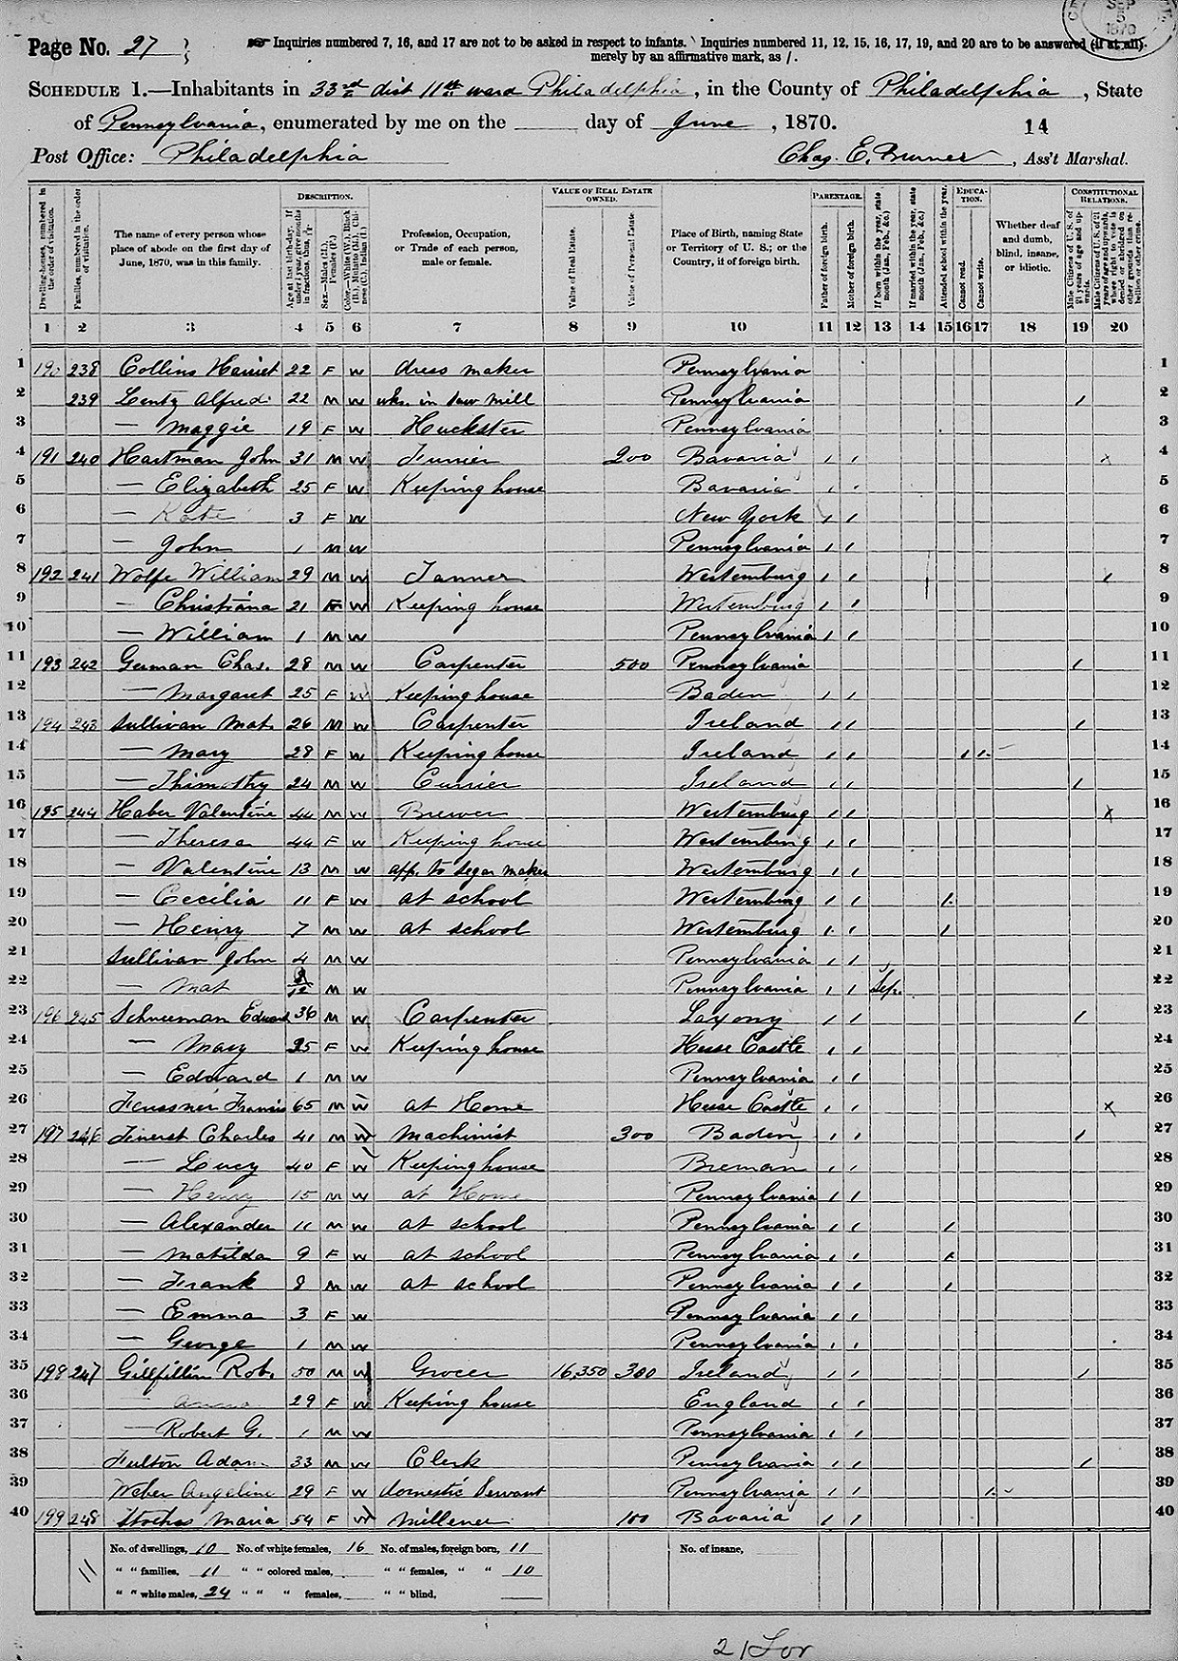 Page No. 27
Inquiries numbered 7, 16, and 17 are not to be asked in respect to infants. Inquiries numbered 11, 12, 15, 16, 17, 19, and 20 are to be answered (if at all)
merely by an affirmative mark, as /.
SEP 5 1870
SCHEDULE 1.—Inhabitants in 33rd dist 11th ward Philadelphia, in the County of Philadelphia, State
of Pennsylvania, enumerated by me on the day of June, 1870.
14
Post Office: Philadelphia Chas. E. , Ass't Marshal.
Dwelling-houses, numbered in the order of visitation.
Families, numbered in the order of visitation.
The name of every person whose place of abode on the first day of June, 1870, was in this family.
DESCRIPTION.
Age at last birth-day. If under 1 year, give months in fractions, thus,
Sex.—Males (M.), Females (F.)
Color.—White (W.), Black (B.), Mulatto (M.), Chinese (C.), Indian (I.)
Profession, Occupation, or Trade of each person, male or female.
VALUE OF REAL ESTATE OWNED.
Value of Real Estate.
Value of Personal Estate.
Place of Birth, naming State or Territory of U. S.; or the Country, if of foreign birth.
PARENTAGE.
Father of foreign birth.
Mother of foreign birth.
If born within the year, state month (Jan., Feb., &c.)
If married within the year, state month (Jan., Feb., &c.)
EDUCATION.
Attended school within the year.
Cannot read.
Cannot write.
Whether deaf and dumb, blind, insane, or idiotic.
CONSTITUTIONAL RELATIONS.
Male Citizens of U. S. of 21 years of age and upwards.
Male Citizens of U. S. of 21 years of age and upwards, whose right to vote is denied or abridged on other grounds than rebellion or other crime.
1 2 3 4 5 6 7 8 9 10 11 12 13 14 15 16 17 18 19 20
1 190 238 Collins Harriet 22 F W dress maker Pennsylvania 1
2 239 Lentz Alfred 22 M W wks. in saw mill Pennsylvania / 2
3 — Maggie 19 F W Huckster Pennsylvania 3
4 191 240 Hartman John 31 M W Furrier 200 Bavaria / / x 4
5 — Elizabeth 25 F W Keeping house Bavaria / / 5
6 — Kate 3 F W New York / / 6
7 — John 1 M W Pennsylvania / / 7
8 192 241 Wolfe William 29 M W Tanner Wertemburg / / / 8
9 — Christiana 21 F W Keeping house Wertemburg / / 9
10 — William 1 M W Pennsylvania / / 10
11 193 242 German Chas. 28 M W Carpenter 500 Pennsylvania / 11
12 — Margaret 25 F W Keeping house Baden / / 12
13 194 243 Sullivan Mat. 26 M W Carpenter Ireland / / / 13
14 — Mary 28 F W Keeping house Ireland / / / / 14
15 — Thimothy 24 M W Currier Ireland / / / 15
16 195 244 Haber Valentine 44 M W Brewer Wertemburg / / x 16
17 — Theresa 44 F W Keeping house Wertemburg / / 17
18 — Valentine 13 M W app. to segar maker Wertemburg / / 18
19 — Cecilia 11 F W at school Wertemburg / / / 19
20 — Henry 7 M W at school Wertemburg / / / 20
21 Sullivan John 4 M W Pennsylvania / / 21
22 — Mat M W Pennsylvania / / Sep. 22
23 196 245 Schneeman Edward 36 M W Carpenter Saxony / / / 23
24 — Mary 35 F W Keeping house Hesse Castle / / 24
25 — Edward 1 M W Pennsylvania / / 25
26 Feussner Francis 65 M W at Home Hesse Castle / / x 26
27 197 246 Charles 41 M W Machinist 300 Baden / / / 27
28 — Lucy 40 F W Keeping house Breman / / 28
29 — Henry 15 M W at Home Pennsylvania / / 29
30 — Alexander 11 M W at school Pennsylvania / / / 30
31 — Matilda 9 F W at school Pennsylvania / / / 31
32 — Frank 8 M W at school Pennsylvania / / / 32
33 — Emma 3 F W Pennsylvania / / 33
34 — George 1 M W Pennsylvania / / 34
35 198 247 Gillfillin Rob. 50 M W Grocer 16,350 300 Ireland / / / 35
36 — Anna 29 F W Keeping house England / / 36
37 — Robert G. 1 M W Pennsylvania / / 37
38 Fulton Adam 33 M W Clerk Pennsylvania / / / 38
39 Weber Angeline 29 F W domestic Servant Pennsylvania / / / 39
40 199 248 Maria 54 F W Millener 100 Bavaria / / 40
No. of dwellings, 10 No. of white females, 16 No. of males, foreign born, 11 No. of insane,
" " families, 11 " " colored males, " " females, " " 10
" " white males, 24 " " " females, " " blind,
11